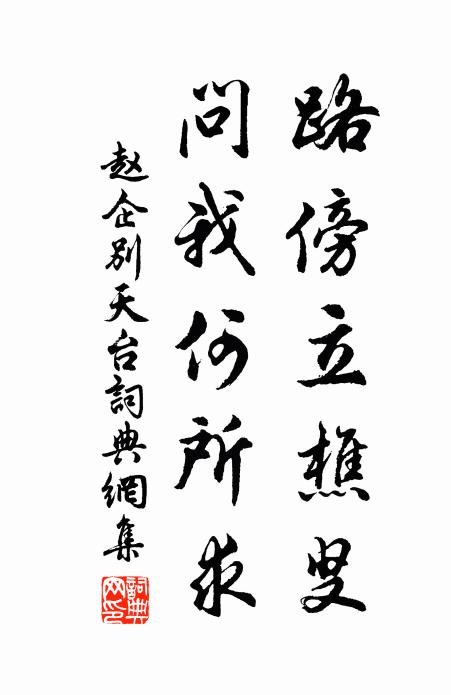 路傍立樵叟
问我何所求
赵企别天台詞典網集
詞典
网印